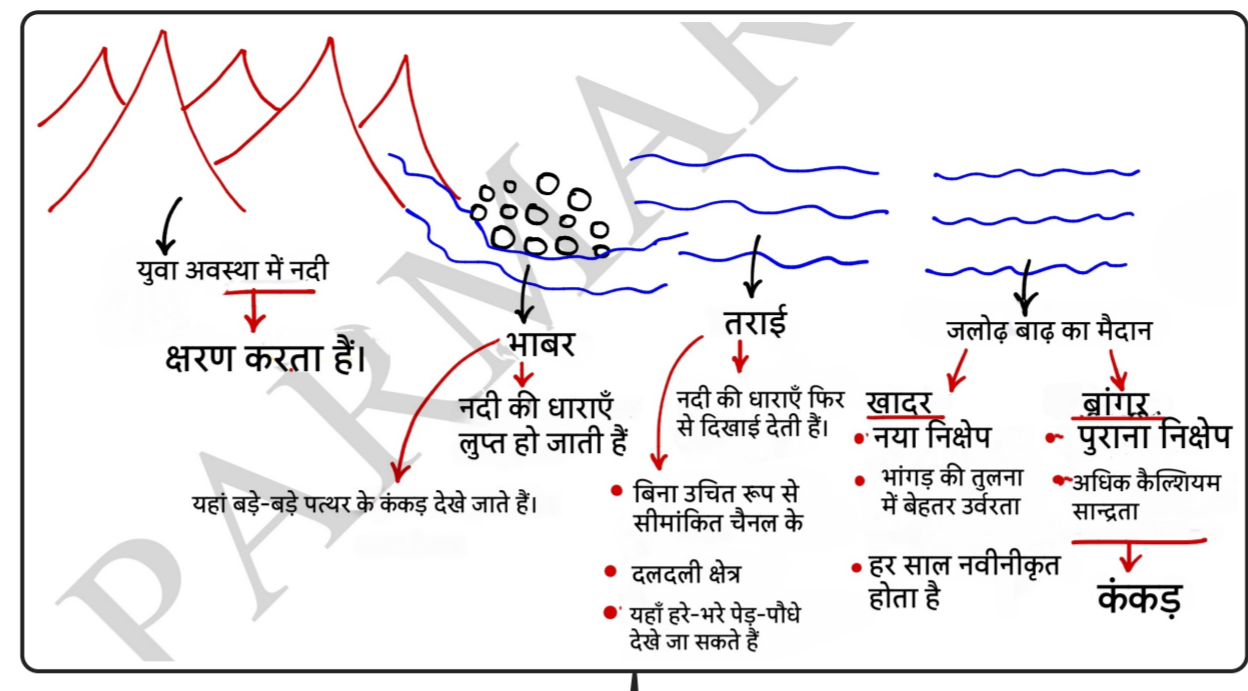 युवा अवस्था में नदी
क्षरण करता हैं।
भाबर
नदी की धाराएँ
लुप्त हो जाती हैं
यहां बड़े-बड़े पत्थर के कंकड़ देखे जाते हैं।
तराई
नदी की धाराएँ फिर
से दिखाई देती हैं।
बिना उचित रूप से
सीमांकित चैनल के
दलदली क्षेत्र
यहाँ हरे-भरे पेड़-पौधे
देखे जा सकते हैं
जलोढ़ बाढ़ का मैदान
खादर
नया निक्षेप
भांगड़ की तुलना
में बेहतर उर्वरता
हर साल नवीनीकृत
होता है
बांगर
पुराना निक्षेप
अधिक कैल्शियम
सान्द्रता
कंकड़
PARMAR